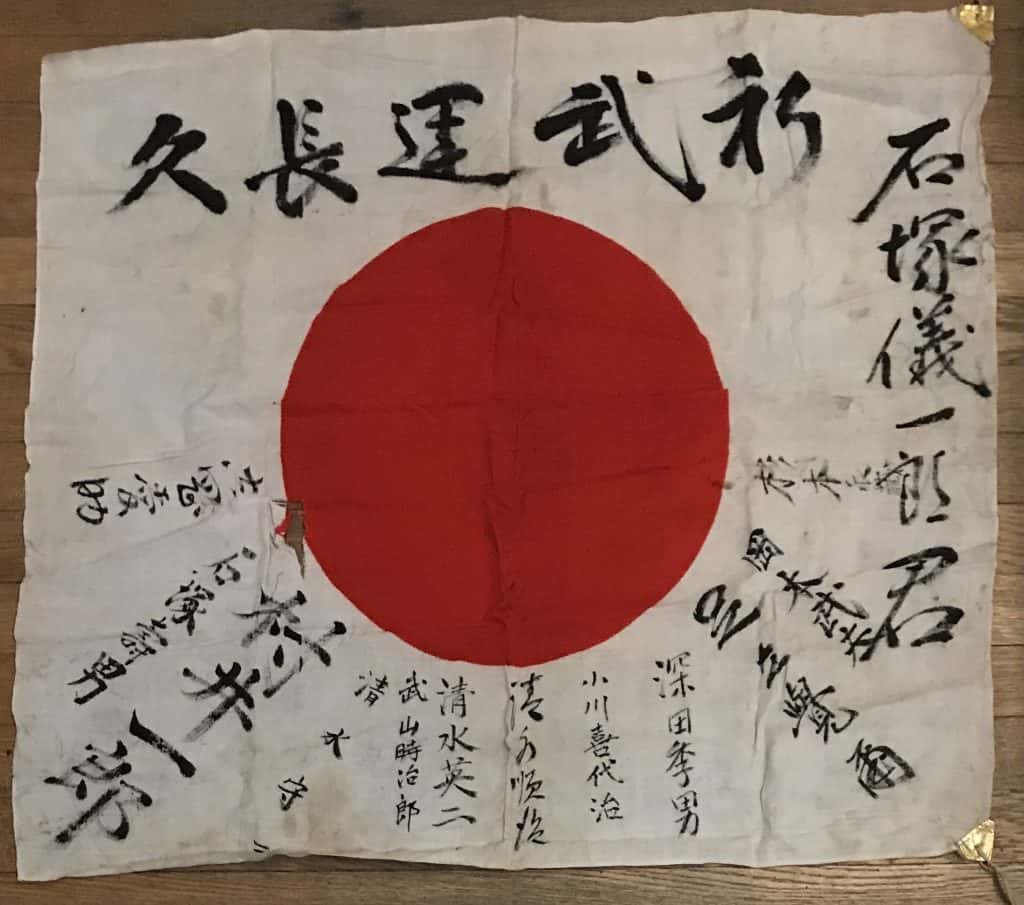 祈武運長久
石塚儀一郎君
岡本武
深田季男
小川喜代治
清水順
清水英二
武山時治郎
清水守
村井一郎
石塚 男